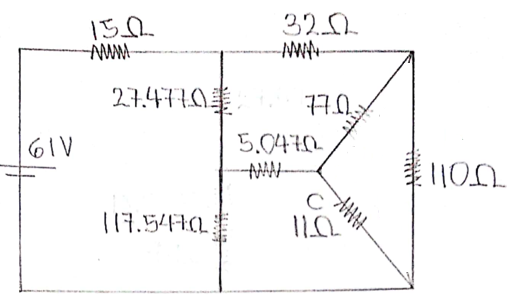 15Ω
32Ω
27.477Ω
77Ω
61V
5.047Ω
110Ω
C
117.547Ω
11Ω